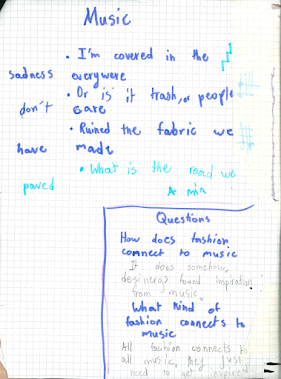 Music
• I'm covered in the
sadness everywere
• Or is it trash, or people
don't care
• Ruined the fabric we
have made
• What is the road we
paved
A min
Questions
How does fashion
connect to music
It does somehow,
designers found inspiration
from music.
What kind of
fashion connects to
music
All fashion connects to
all music, they just
need to get inspired